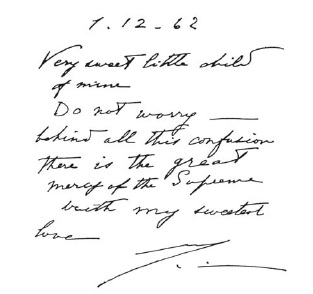 1.12-62
Very sweet little child
of mine
Do not worry —
behind all this confusion
there is the great
mercy of the Supreme
with my sweetest
love